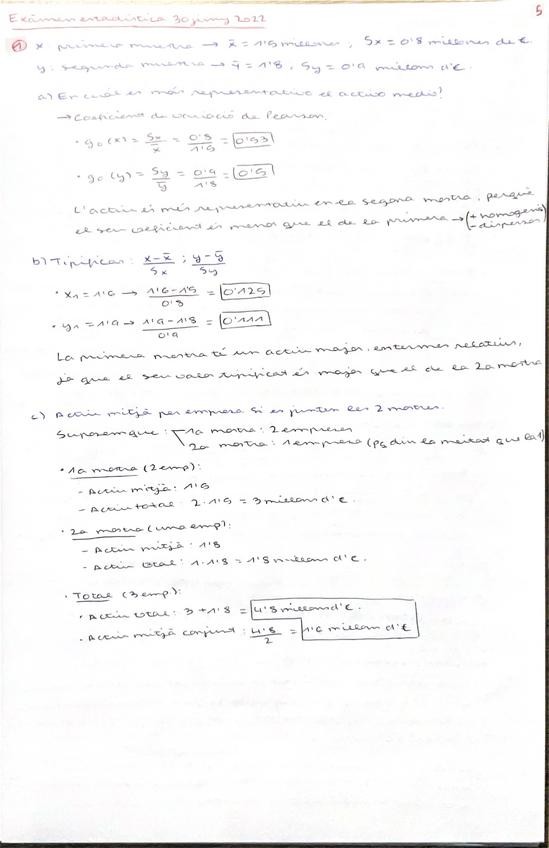 5
Exámen estadística 30 juny 2022
1 x primera muestra → x̄ = 1'5 millones, Sx = 0'8 millones de €
y: segunda muestra → ȳ = 1'8, Sy = 0'9 millons d'€.
a) En cuál es más representativo el activo medio?
→ Coeficient de variació de Pearson.
· g₀(x) = Sx/x̄ = 0'8/1'5 = 0'53
· g₀(y) = Sy/ȳ = 0'9/1'8 = 0'5
L'actiu és més representatiu en la segona mostra, perquè
el seu coeficient és menor que el de la primera → (+ homogenis - dispersos)
b) Tipificar: x-x̄/Sx ; y-ȳ/Sy
· x₁ = 1'6 → 1'6-1'5/0'8 = 0'125
· y₁ = 1'9 → 1'9-1'8/0'9 = 0'111
La primera mostra té un actiu major, en termes relatius,
ja que el seu valor tipificat és major que el de la 2a mostra
c) Actiu mitjà per empresa si es junten les 2 mostres.
Suposem que: 1a mostra: 2 empreses
2a mostra: 1 empresa (pq diu la meitat que la 1)
· 1a mostra (2 emp):
- Actiu mitjà: 1'5
- Actiu total: 2·1'5 = 3 millons d'€.
· 2a mostra (una emp):
- Actiu mitjà: 1'8
- Actiu total: 1·1'8 = 1'8 millons d'€.
· Total (3 emp.):
· Actiu total: 3 + 1'8 = 4'8 millons d'€.
· Actiu mitjà conjunt: 4'8/2 = 1'6 millons d'€